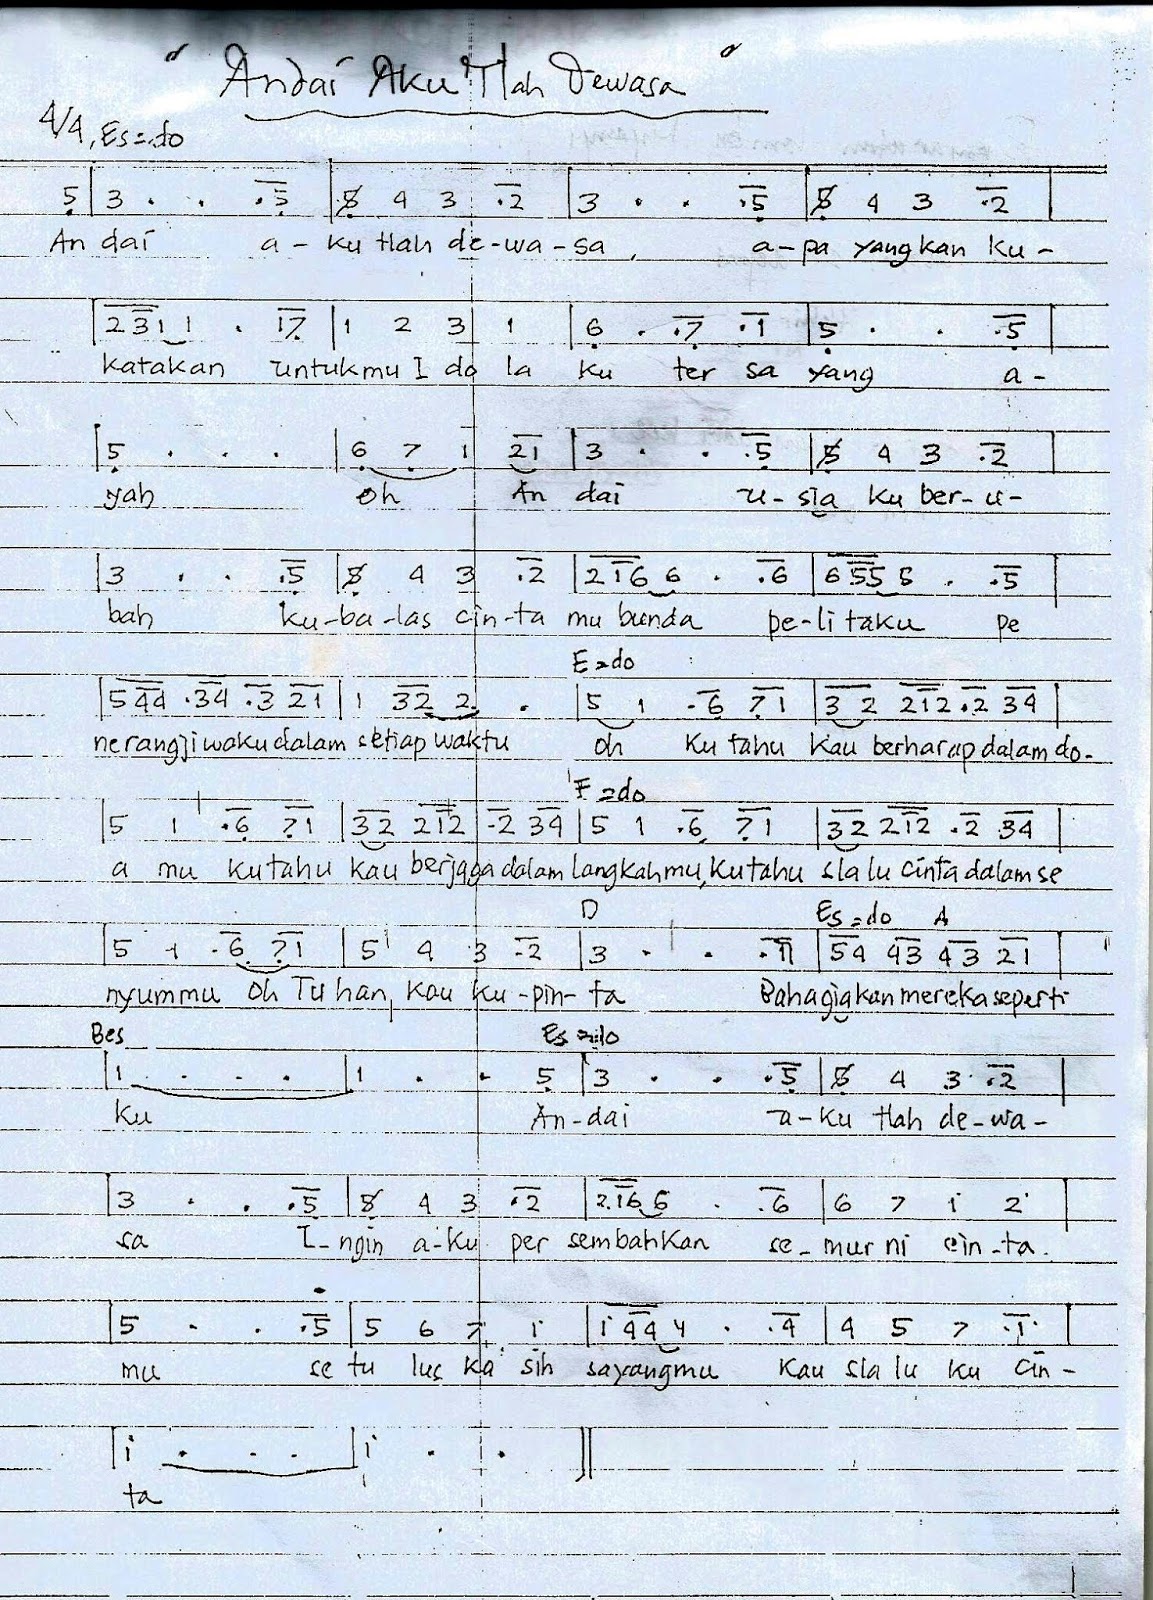 " Andai Aku Tlah Dewasa "
4/4, Es = do
5 | 3 . . .5 | 5 4 3 .2 | 3 . . .5 | 5 4 3 .2 |
An dai a - ku tlah de-wa-sa, a-pa yang kan ku -
| 2 3 1 1 . 1 7 | 1 2 3 1 | 6 . .7 .1 | 5 . . .5 |
katakan untukmu I do la ku ter sa yang a -
| 5 . . . | 6 7 1 21 | 3 . . .5 | 5 4 3 .2 |
yah oh An dai u - sia ku ber-u-
| 3 . . .5 | 5 4 3 .2 | 2 1 6 6 . .6 | 6 5 5 5 . .5 |
bah ku-ba-las cin-ta mu bunda pe-li taku pe
E = do
| 5 44 .34 .3 21 | 1 32 2 . | 5 1 .6 71 | 3 2 212 .2 34 |
nerang jiwaku dalam setiap waktu oh Ku tahu kau berharap dalam do-
F = do
| 5 1 .6 71 | 32 212 | .2 34 | 5 1 .6 71 | 32 212 .2 34 |
a mu ku tahu kau berjaga dalam langkahmu, Ku tahu sla lu cinta dalam se
D Es = do A
| 5 1 .6 71 | 5 4 3 .2 | 3 . . .11 | 54 43 43 21 |
nyummu oh Tu han, kau ku-pin-ta Bahagiakan mereka seperti
Bes Es = do
| 1 . . . | 1 . . 5 | 3 . . .5 | 5 4 3 .2 |
ku An-dai a-ku tlah de-wa-
| 3 . . .5 | 5 4 3 .2 | 2.16 6 . .6 | 6 7 1 2 |
sa I-ngin a-ku per sembahkan se-mur ni cin-ta.
| 5 . . .5 | 5 6 7 1 | 1 44 4 . .4 | 4 5 7 .1 |
mu se tu lus ka sih sayangmu kau sla lu ku cin -
| 1 . . . | 1 . . ||
ta